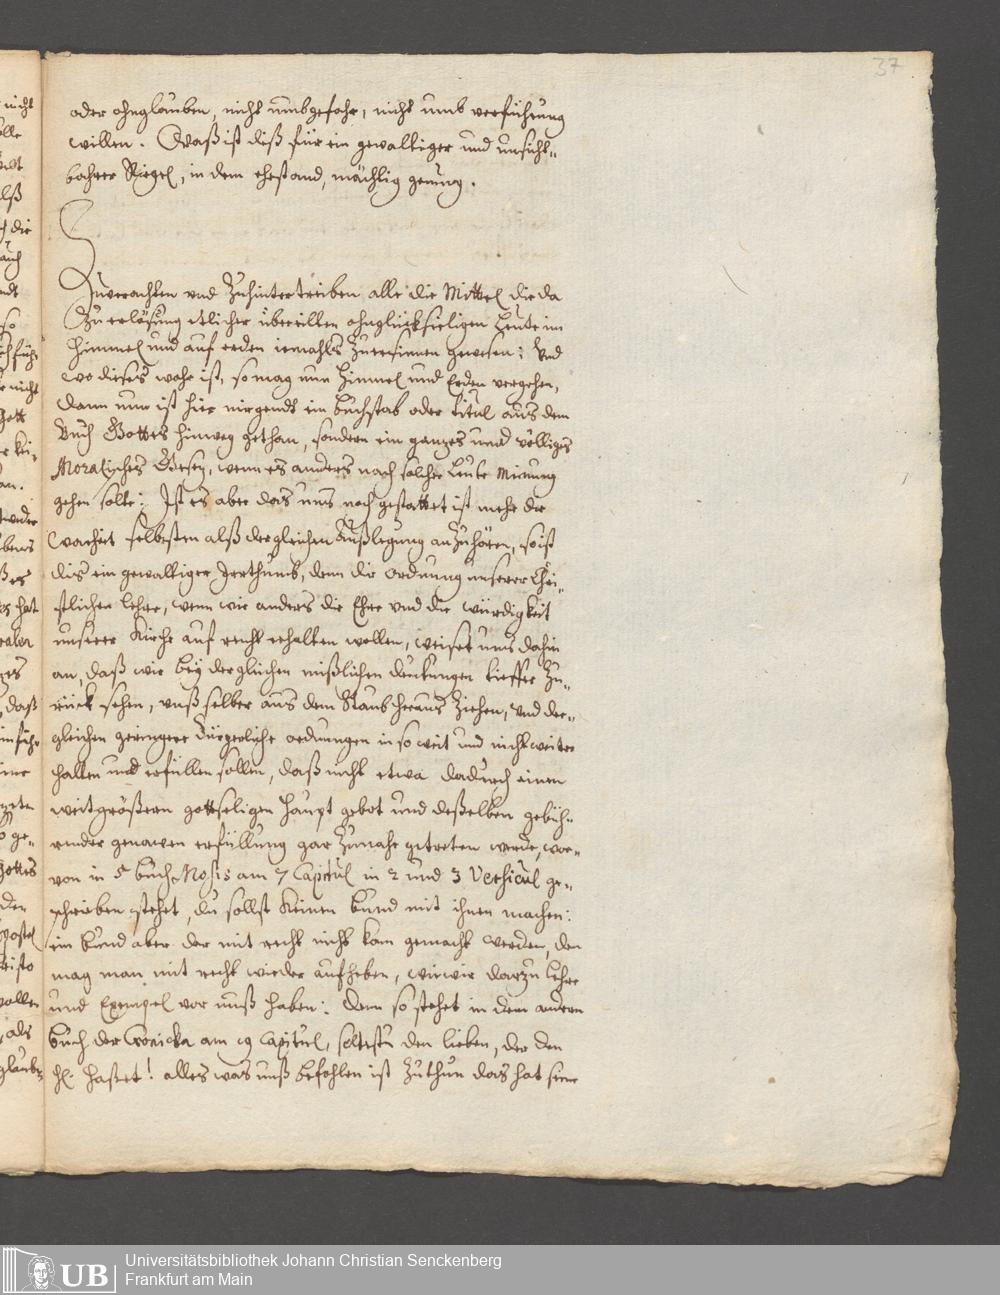 37
oder ohnglauben, nicht umbgefahr, nicht umb verführung
willen. Waß ist diß für ein gewaltiger und unsicht-
bahrer Riegel, in dem ehestand, mächtig genung.
Zuverachten und Zuhintertreiben alle die Mittel die da
Zu erlößung etlicher übereilten ohnglückseeligen Leute im
Himmel und auf erden iemahls Zuersinnen gewesen: Und
wo dieses wahr ist, so mag nun Himmel und Erden vergehen,
dann nun ist hier nirgendt ein buchstab oder titul aus dem
Buch Gottes hinweg gethan, sondern ein ganzes und völliges
Moralisches Gesez, wenn es anders nach solcher Leute Meinung
gehen solte: Ist es aber das uns noch gestattet ist mehr die
Warheit selbsten alß dergleichen Außlegung anzuhören, so ist
dis ein gewaltiger Irrthumb, denn die ordnung unserer Chri-
stlichen lehre, wenn wir anders die Ehre und die würdigkeit
unserer Kirche auf recht erhalten wollen, weiset uns dahin
an, daß wir bey dergleichen mißlichen deutungen tieffer Zu-
rück sehen, unß selber aus dem Staub heraus Ziehen, und der-
gleichen geringere bürgerliche ordnungen in so weit und nicht weiter
halten und erfüllen sollen, daß nicht etwa dadurch einem
weit größern gottseligen Haupt gebot und deßelben gebüh-
render genawen erfüllung gar Zunahe getreten werde, wor-
von in 5 buch Mosis am 7 Capitul in 2 und 3 Versicul ge-
schrieben stehet, du sollst keinen bund mit ihnen machen:
ein bund aber der mit recht nicht kan gemacht werden, den
mag man mit recht wieder aufheben, wie wir darzu Lehre
und Exempel vor unß haben: denn so stehet in dem andern
buch der Cronicka am 19 Capitul, soltestu den lieben, der den
H. haßet! alles was unß befohlen ist Zuthun das hat seine
Universitätsbibliothek Johann Christian Senckenberg
Frankfurt am Main
UB